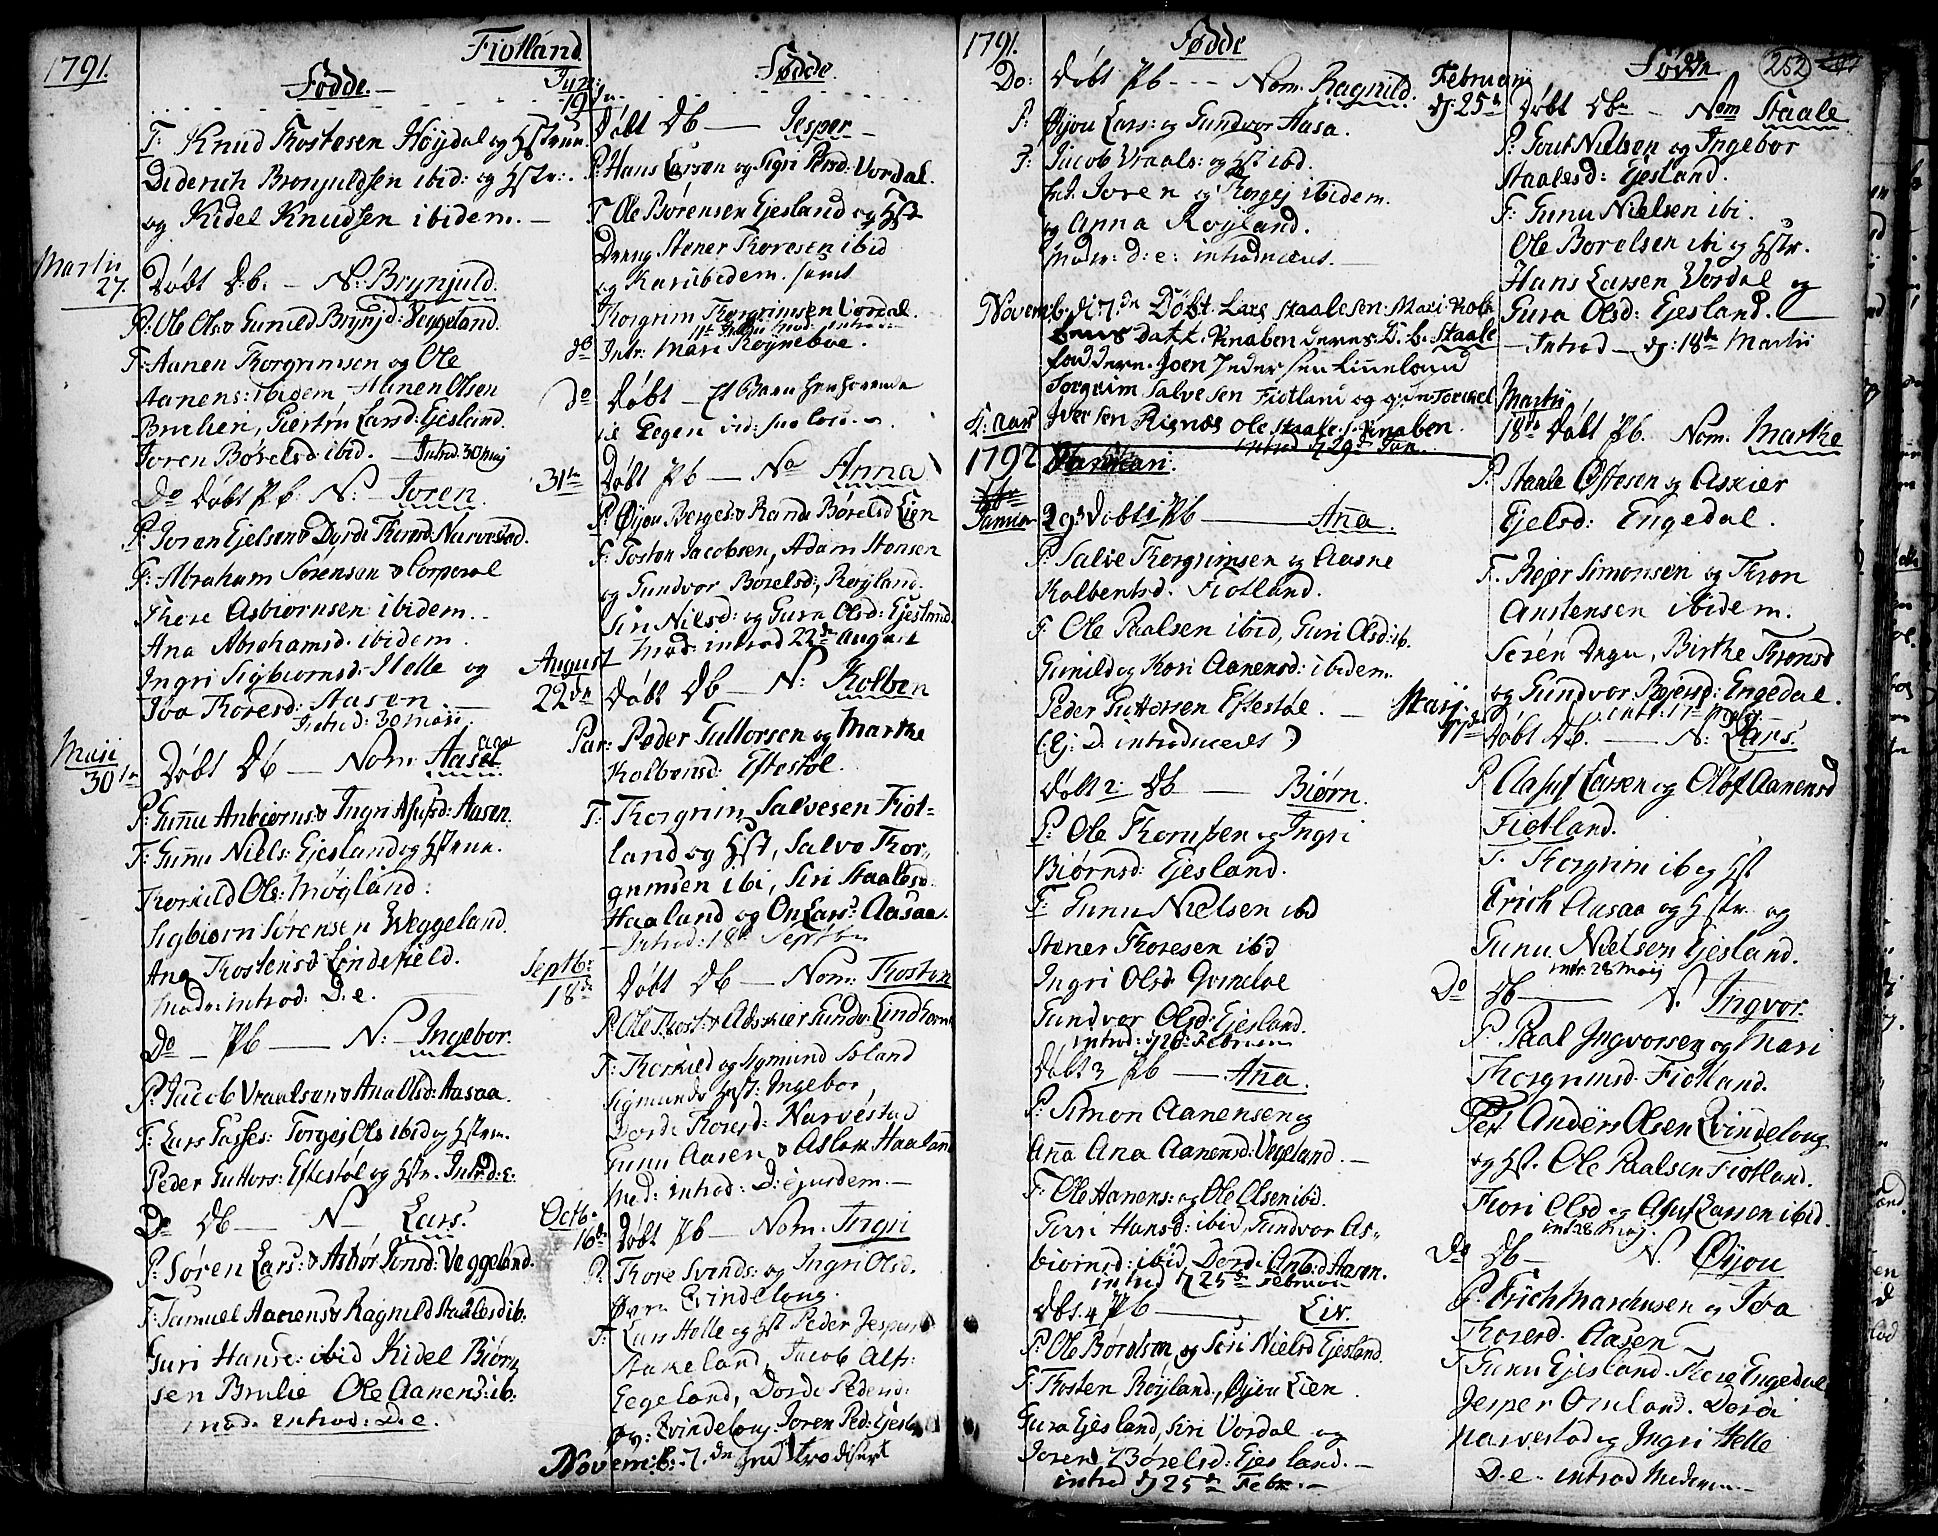 1791.
Fiotland
Fødde.
F: Knud Trostesen Høydal og Hstrue
Diderich Bronjuldsen ibid: og Hstr:
og Kidel Knudsen ibidem.
Martii
27.
Døbt Db. - N: Brynjuld.
P: Ole Ols & Gunild Brynjd: Veggeland.
F: Aanen Thorgrimsen og Ole
Aanens: ibidem, Aanen Olsen
Brulien, Giertru Larsd: Ejesland.
Joren Børelsd ibid. - Introd. 30 Maj
Do Døbt Pb. N: - Joren.
P: Joran Ejelsen & Dorde Thoresd: Narvestad.
F: Abraham Sørensen & Corporal
Thore Asbiørnsen ibidem.
Ana Abrahamsd. ibidem.
Ingri Sigbiørnsd: Helle og
Jøa Thoresd: Aasen.
Introd: 30 Maji
Maji
30te
Døbt Db - Nom: Aasel
P: Gunnu Anbiørns: & Ingri Asufsd: Aasen.
F: Gunnu Niels: Ejesland og Hstrue.
Thorkild Ols: Møgland:
Sigbiørn Sørensen Weggeland.
Ana Trostensd Lindefield.
Modr: introd: D. e.
Do - Pb - N: - Ingebor.
P: Jacob Vraalsen & Ana Olsd: Aasaa.
F: Lars Tasses: Torgej Ols ibid og Hstru.
Peder Guttors: Eftestøl og Hstr. Introd: E:
Do Db - N - Lars.
P: Søren Lars: & Astrør Tonsd: Veggeland.
F: Samuel Aanens & Ragnild Staalesd ib:
Guri Hanse: ibid Kidel Biørn
sen Brulie Ole Aanens: ib.
mod. introd: D. e.
Fødde.
19de
Døbt Db - Jesper
P: Hans Larsen og Sigri Persd: Vordal.
F Ole Børensen Ejesland og Hst
Dreng Stener Thoresen ibid
og Kari ibidem. samt
Thorgrim Thorgrimsen Vordal.
do Intr: Mari Røyneboe.
do Døbt - Et Barn
31te Døbt Pb - No Anna
P: Øjou Berges: & Rande Børelsd Lien
F: Tosten Jacobsen, Adam Stensen
og Gundvor Børelsd:, Røyland.
Siri Nilsd: og Gura Olsd: Ejesland
Mod: introd 22de August
August
22de Døbt Db - N: Kolben
Par: Peder Guttorsen og Marthe
Kolbensd: Eftestøl.
F: Thorgrim Salvesen Fiot-
land og Hst, Salve Thor-
grimsen ibi, Siri Staalesd:
Haaland og On Lars: Aasaa.
Introd: 18de Septbr
Septb:
18de Døbt Db - Nom: Trosten
P: Ole Trost: & Adskier Gundv: Lindhom
F: Thorkild og Sigmund Soland
Sigmunds Hst: Ingebor,
Dorde Thoresd: Narvestad
Gunu Aasen & Aslak Haaland
Mod: introd: D: ejusdem.
Octb.
16de Døbt Pb - Nom: Ingri
P. Thore Svinds: og Ingri Olsd.
Øvre Qvindeloug.
F: Lars Helle og Hst Peder Jespers
Stakeland, Jacob Alfs:
Eegeland, Dorde Pedersd:
Qvindeloug. Joren Ped: Ejesl
Novemb. 7de Introdisert
1791.
Fødde
Do: Døbt Pb - - Nom. Ragnild.
P: Øjou Lars: og Gundvor Aasa.
F: Jacob Vraals: og Hst ibd.
Joren og Torgej ibidem.
og Anna Røyland.
Moder: D: e: introduceres.
Novemb. d: 7de Døbt Lars Staalesen Mari Kolb
bens Datt. Knaben deres D. b. Staale
faddere. Joen Pedersen Linneland
Torgrim Salvesen Fiotland og Torchel
Iversen Rignæs Ole Staales: Knaben.
introd 29de Jan.
1792
Januari.
Januar
29de Døbt 1 Pb - Ana.
P: Salve Thorgrimsen og Aasne
Kolbentsd. Fiotland.
F: Ole Paalsen ibid, Guri Olsd: ib.
Gunild og Kori Aanensd: ibidem.
Peder Guttorsen Eftestøl.
(Ej: D. introduceres)
Døbt 2 Db - Biørn.
P: Ole Thorussen og Ingri
Biørnsd: Ejesland.
F: Gunu Nielsen ibd
Stener Thoresen ibd
Ingri Olsd Qvindloe
Gundvor Olsd: Ejesland.
introd: Februari
Døbt 3 Pb - Ana.
P: Simon Aanensen og
Ana Ana Aanensd: Vegeland.
F: Ole Hanens: og Ole Olsen ibid.
Guri Hansd: ibid, Gundvor As-
biørnsd: ibid, Dorde Anbd Aasen.
introd 25de Februari
Døbt 4 Pb - Liv.
P: Ole Børelsen og Siri Nielsd Ejesland.
F: Trosten Røyland, Øjou Lien.
Gura Ejesland, Siri Vordal og
Joren Børelsd: Ejesland.
introd 25de Febr.
Fødde
252
Februari
d: 25de Døbt Db - Nom Staale
P: Tout Nielsen og Ingebor
Staalesd: Ejesland.
F: Gunu Nielsen ibi.
Ole Borelsen ibi og Hstr.
Hans Larsen Vordal og
Gura Olsd: Ejesland.
Introd - d: 18de Martii
Martii
18de Døbt Pb. Nom. Marthe
P: Staale Østesen og Askier
Ejelsd: Engedal.
F. Rejer Simonsen og Tron
Anstensen ibidem.
Seren Ingu, Birthe Tronsd
og Gundvor Rejersd: Engedal.
Maij
17de Døbt Db. - N: Lars.
P Aasuf Larsen og Olof Aanensd
Fiotland.
F. Thorgrim ib og Hst
Erich Aasaa og Hstr og
Gunu Nielsen Ejesland.
intr: 28 Maij
Do Db - N. Ingvor.
P. Paal Ingvorsen og Mari
Thorgrimsd Fiotland.
Anders Olsen Qvindeloug
og Hst. Ole Paalsen Fiotland.
Kori Olsd og Asuf Larsen ibid.
intr 28 Maij.
Do Db - N. Øyou
P. Erich Marchusen og Jøa
Thoresd. Aasen
F Gunu Ejesland. Thore Engedal
Jesper Omland. Dorde
Narvestad og Ingri Helle
D. e. introd Moderen